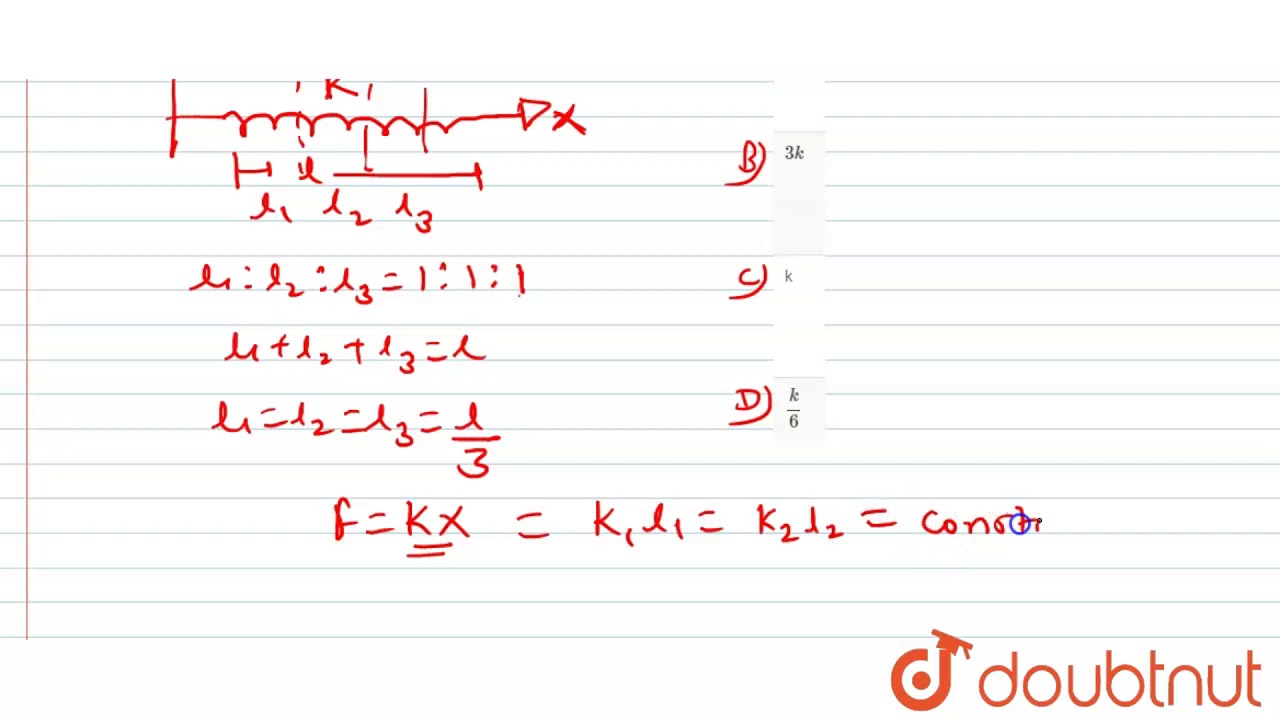 K1
X
l
l1 l2 l3
B) 3k
l1 : l2 : l3 = 1 : 1 : 1
C) k
l1 + l2 + l3 = l
l1 = l2 = l3 = l/3
D) k/6
F = KX = K1 l1 = K2 l2 = const
doubtnut